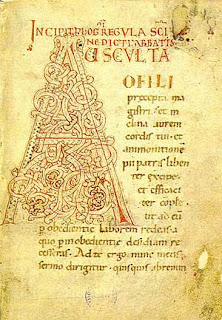 REGULA SCI
NEDICTI ABBATIS
AUSCULTA
O FILI
precepta ma
gistri. et in
clina aurem
cordis tui. et
ammonitionē
pii patris liben
ter excipe.
et efficaci
ter comple.
ut ad eū
p obedientie laborem redeas. a
quo p inobedientie desidiam re
cesseras. Ad te ergo nunc meus
sermo dirigitur. quisquis